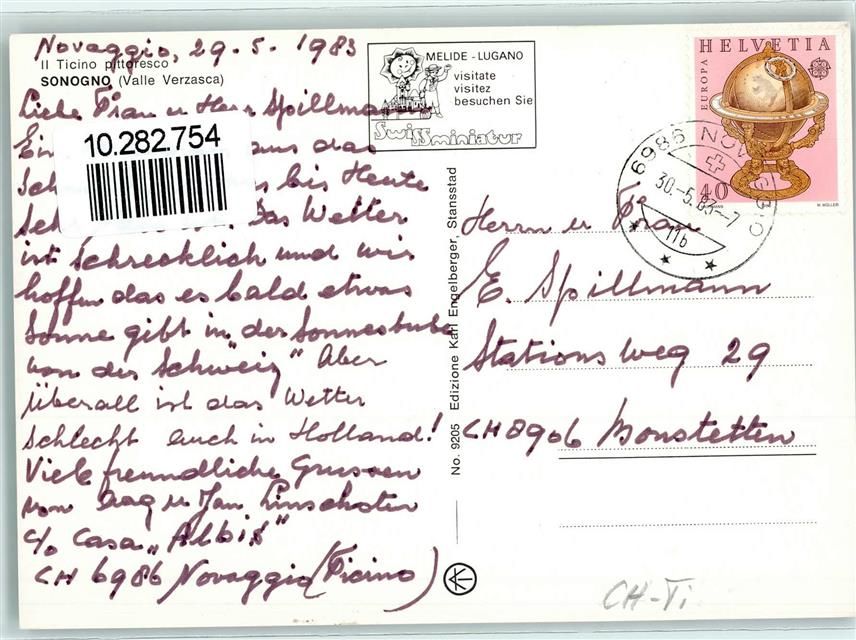 Novaggio, 29.5.1983
Il Ticino pittoresco
SONOGNO (Valle Verzasca)
Liebe Frau u Herr Spillmann
Ein aus das
Sch bis Heute
Sch Das Wetter
ist Schrecklich und wir
hoffen das es bald etwas
Sonne gibt in „der Sonnestube
von der Schweiz" Aber
überall ist das Wetter
schlecht auch in Holland!
Viele freundliche Grussen
von u Jan Linschoten
c/o Casa „Albis"
CH 6986 Novaggio (Ticino)
10.282.754
MELIDE - LUGANO
visitate
visitez
besuchen Sie
Swissminiatur
HELVETIA
EUROPA
40
M. MÜLLER
6986 NOVAGGIO
30.-5.83-7
11b
No. 9205 Edizione Karl Engelberger, Stansstad
Herrn u Frau
E. Spillmann
Stationsweg 29
CH 8906 Bonstetten
CH-Ti